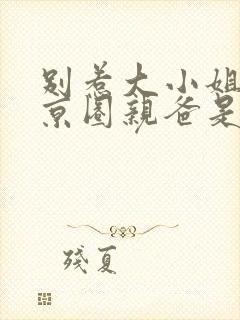 别惹大小姐
京圈親爸是
殘夏